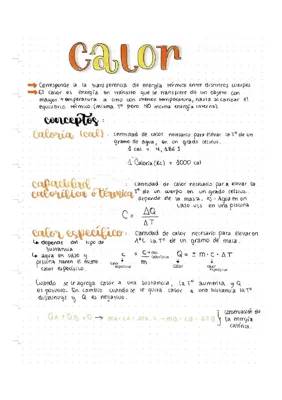 calor
→ Corresponde a la transferencia de energía térmica entre distintos cuerpos
→ El calor es energía en tránsito que se transfiere de un objeto con
mayor temperatura a otro con menor temperatura, hasta alcanzar el
equilibrio térmico. (misma T° pero NO misma energía interna).
conceptos:
caloría (cal): Cantidad de calor necesario para elevar la T° de un
gramo de agua, en un grado celsius.
1 cal = 4,186 J
1 Caloría (kc) = 1000 cal
capacidad
calorífica o térmica:
Cantidad de calor necesario para elevar la
T° de un cuerpo en un grado celsius.
*depende de la masa. ej: Agua en un
vaso v/s en una piscina
C = ΔQ
ΔT
calor específico: Cantidad de calor necesario para elevar en
1°C la T° de un gramo de masa.
↳ depende del tipo de
sustancia
↳ agua en vaso y
piscina tienen el mismo
calor específico
c = C
m
Q = ± m · c · ΔT
calor
calor
específico
Cuando se le agrega calor a una sustancia, la T° aumenta y Q
es positivo. En cambio cuando se le quita calor a una sustancia la T°
disminuye y Q es negativo.
conservación de
la energía
calórica.